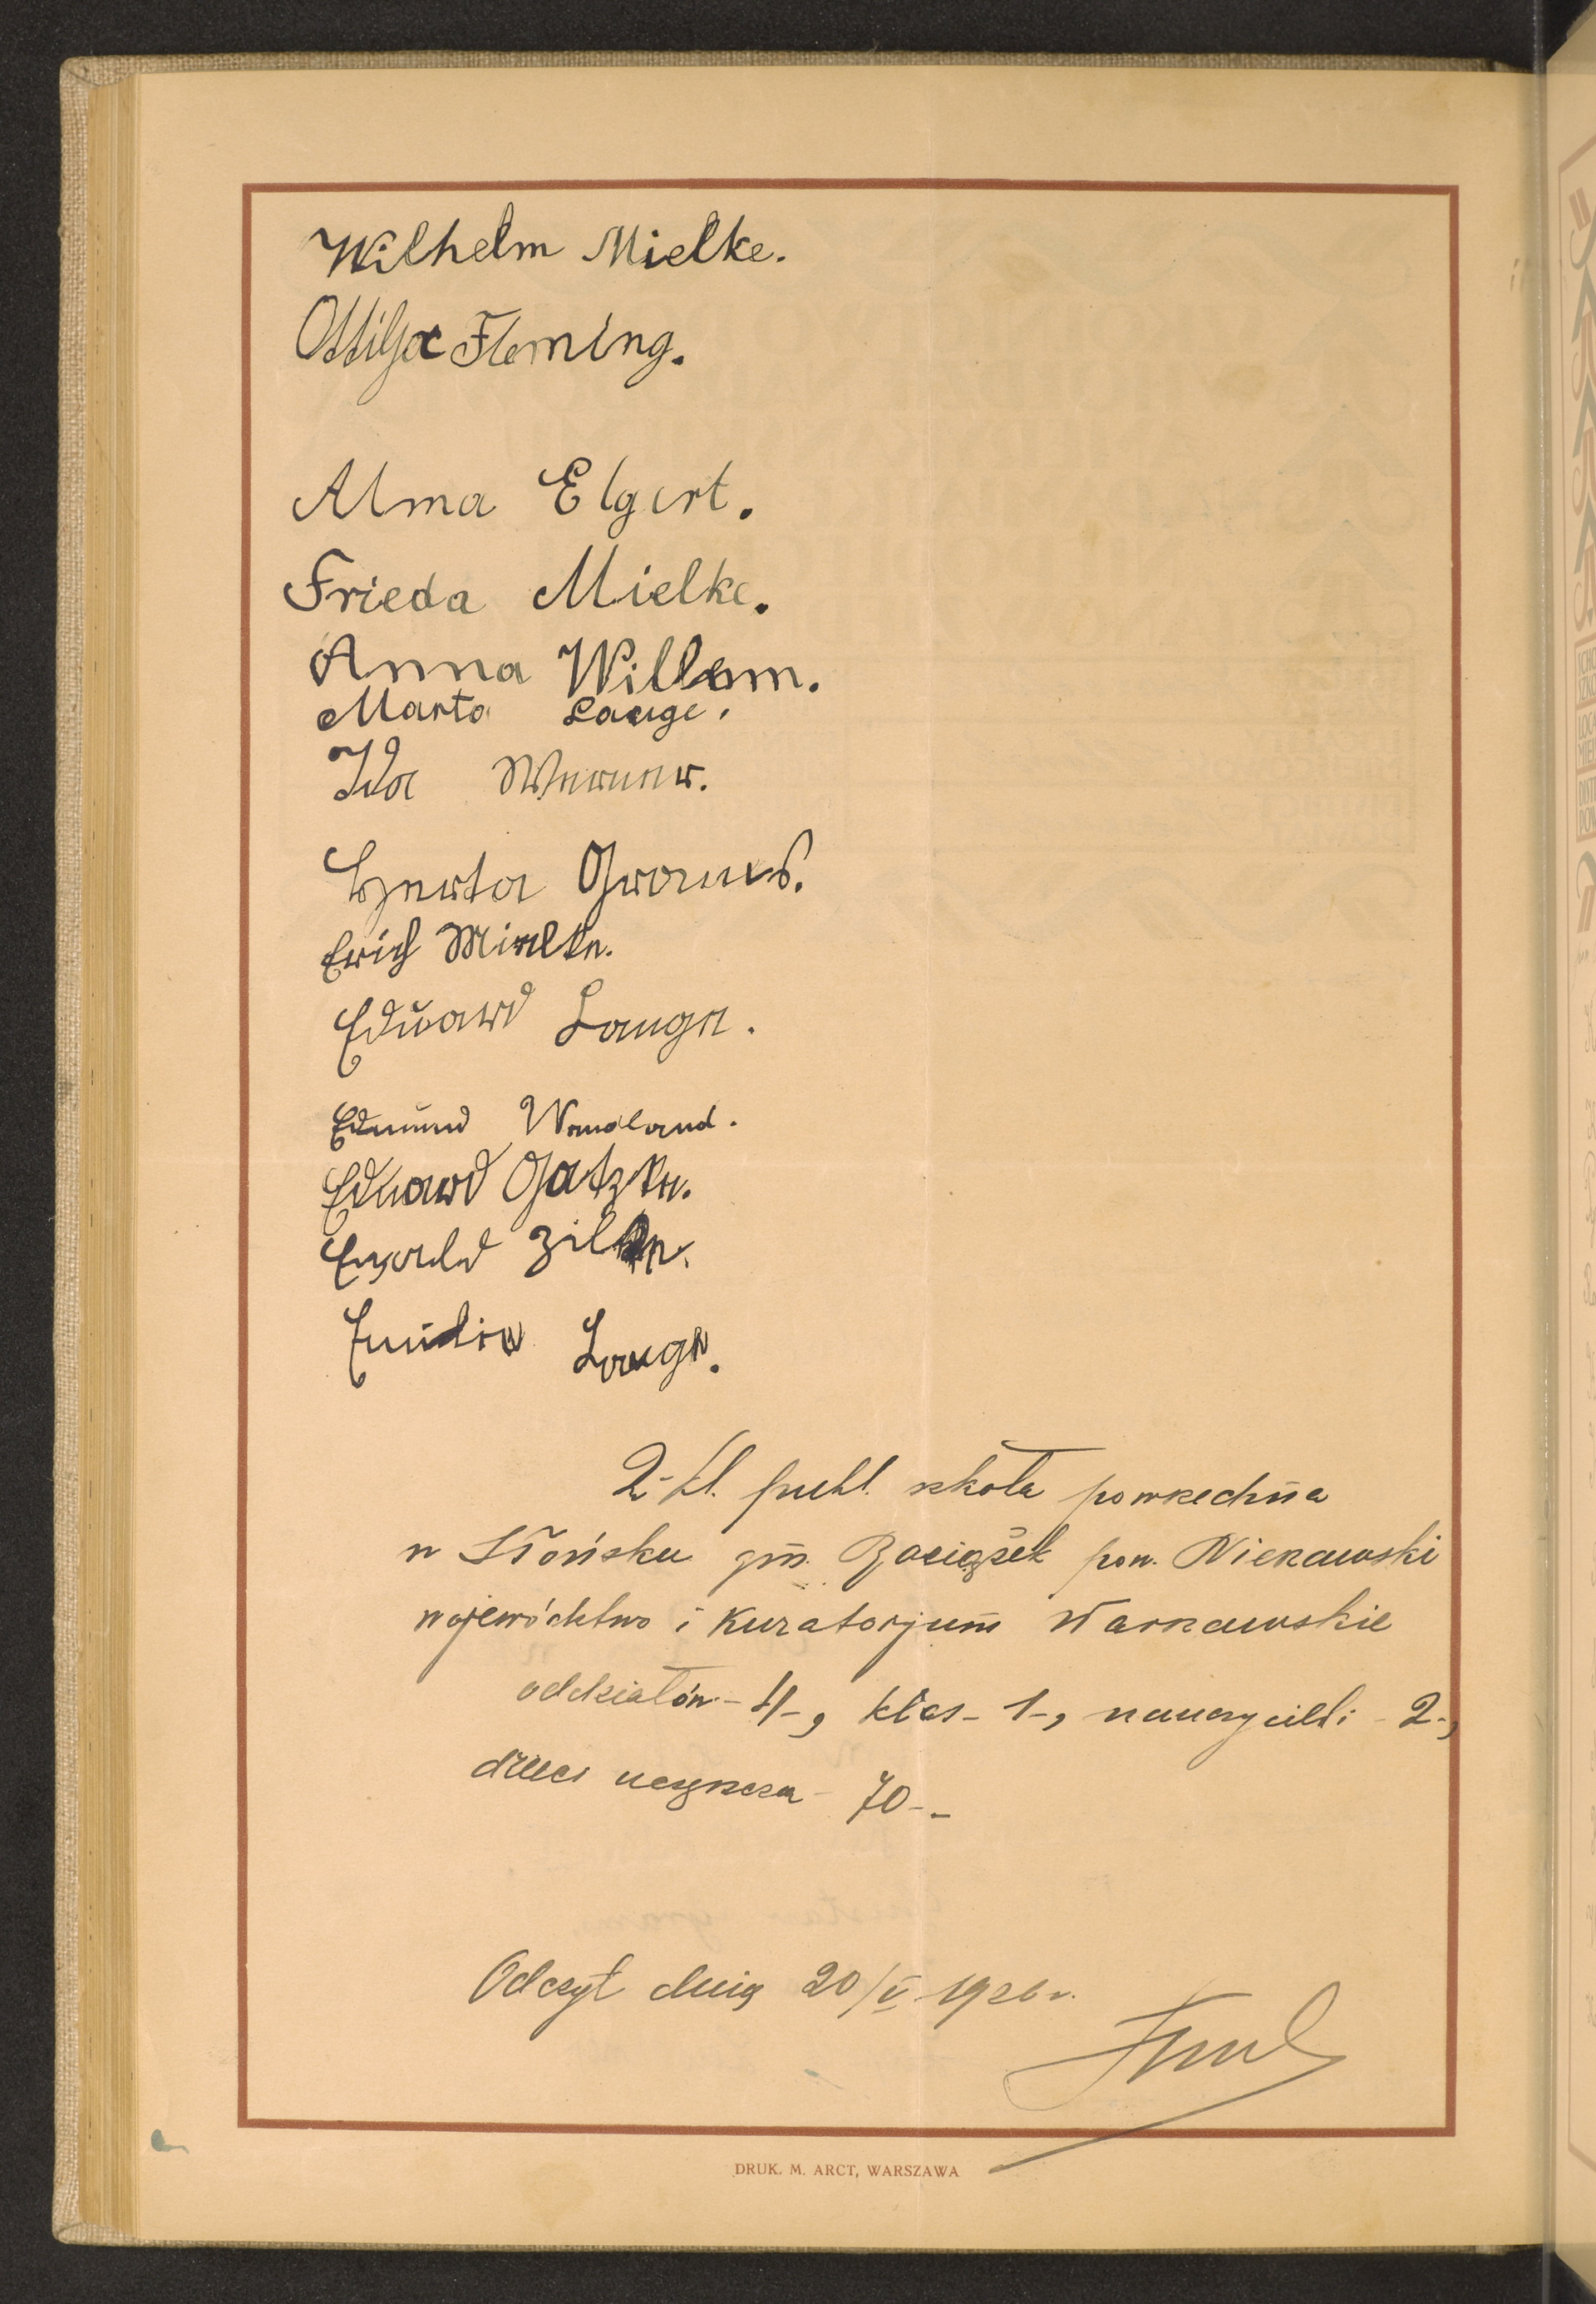 Wilhelm Mielke.
Ottilja Fleming.
Alma Elgert.
Frieda Mielke.
Anna Willam.
Marta Lange.
Ida Werner.
Herta Krams.
Erich Mielke.
Eduard Lange.
Edmund Wendland.
Eduard Gatzke.
Ewald Zilke.
Emilie Lange.
2-kl. publ. szkoła powszechna
w Słońsku gm. Raciążek pow. Nieszawski
wojewódctwo i Kuratorjum Warszawskie
oddziałów - 4-, klas - 1-, nauczycieli - 2-,
dzieci uczęszcza - 70 --
Odczyt dnia 20/V 1926 r.
DRUK. M. ARCT, WARSZAWA